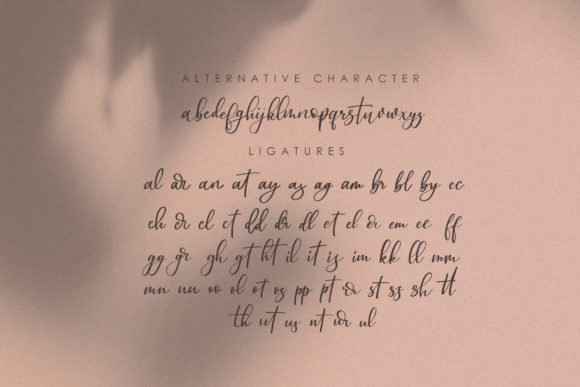 ALTERNATIVE CHARACTER
abcdefghijklmnopqrstuvwxyz
LIGATURES
al ar an at ay as ag am br bl by ec
ch cr cl ct dd dr dl et el er em ee ff
gg gr gh gt ht il it is im kk ll mm
mn nn oo ol ot os pp pt rr st ss sh tt
th ut us nt ur ul